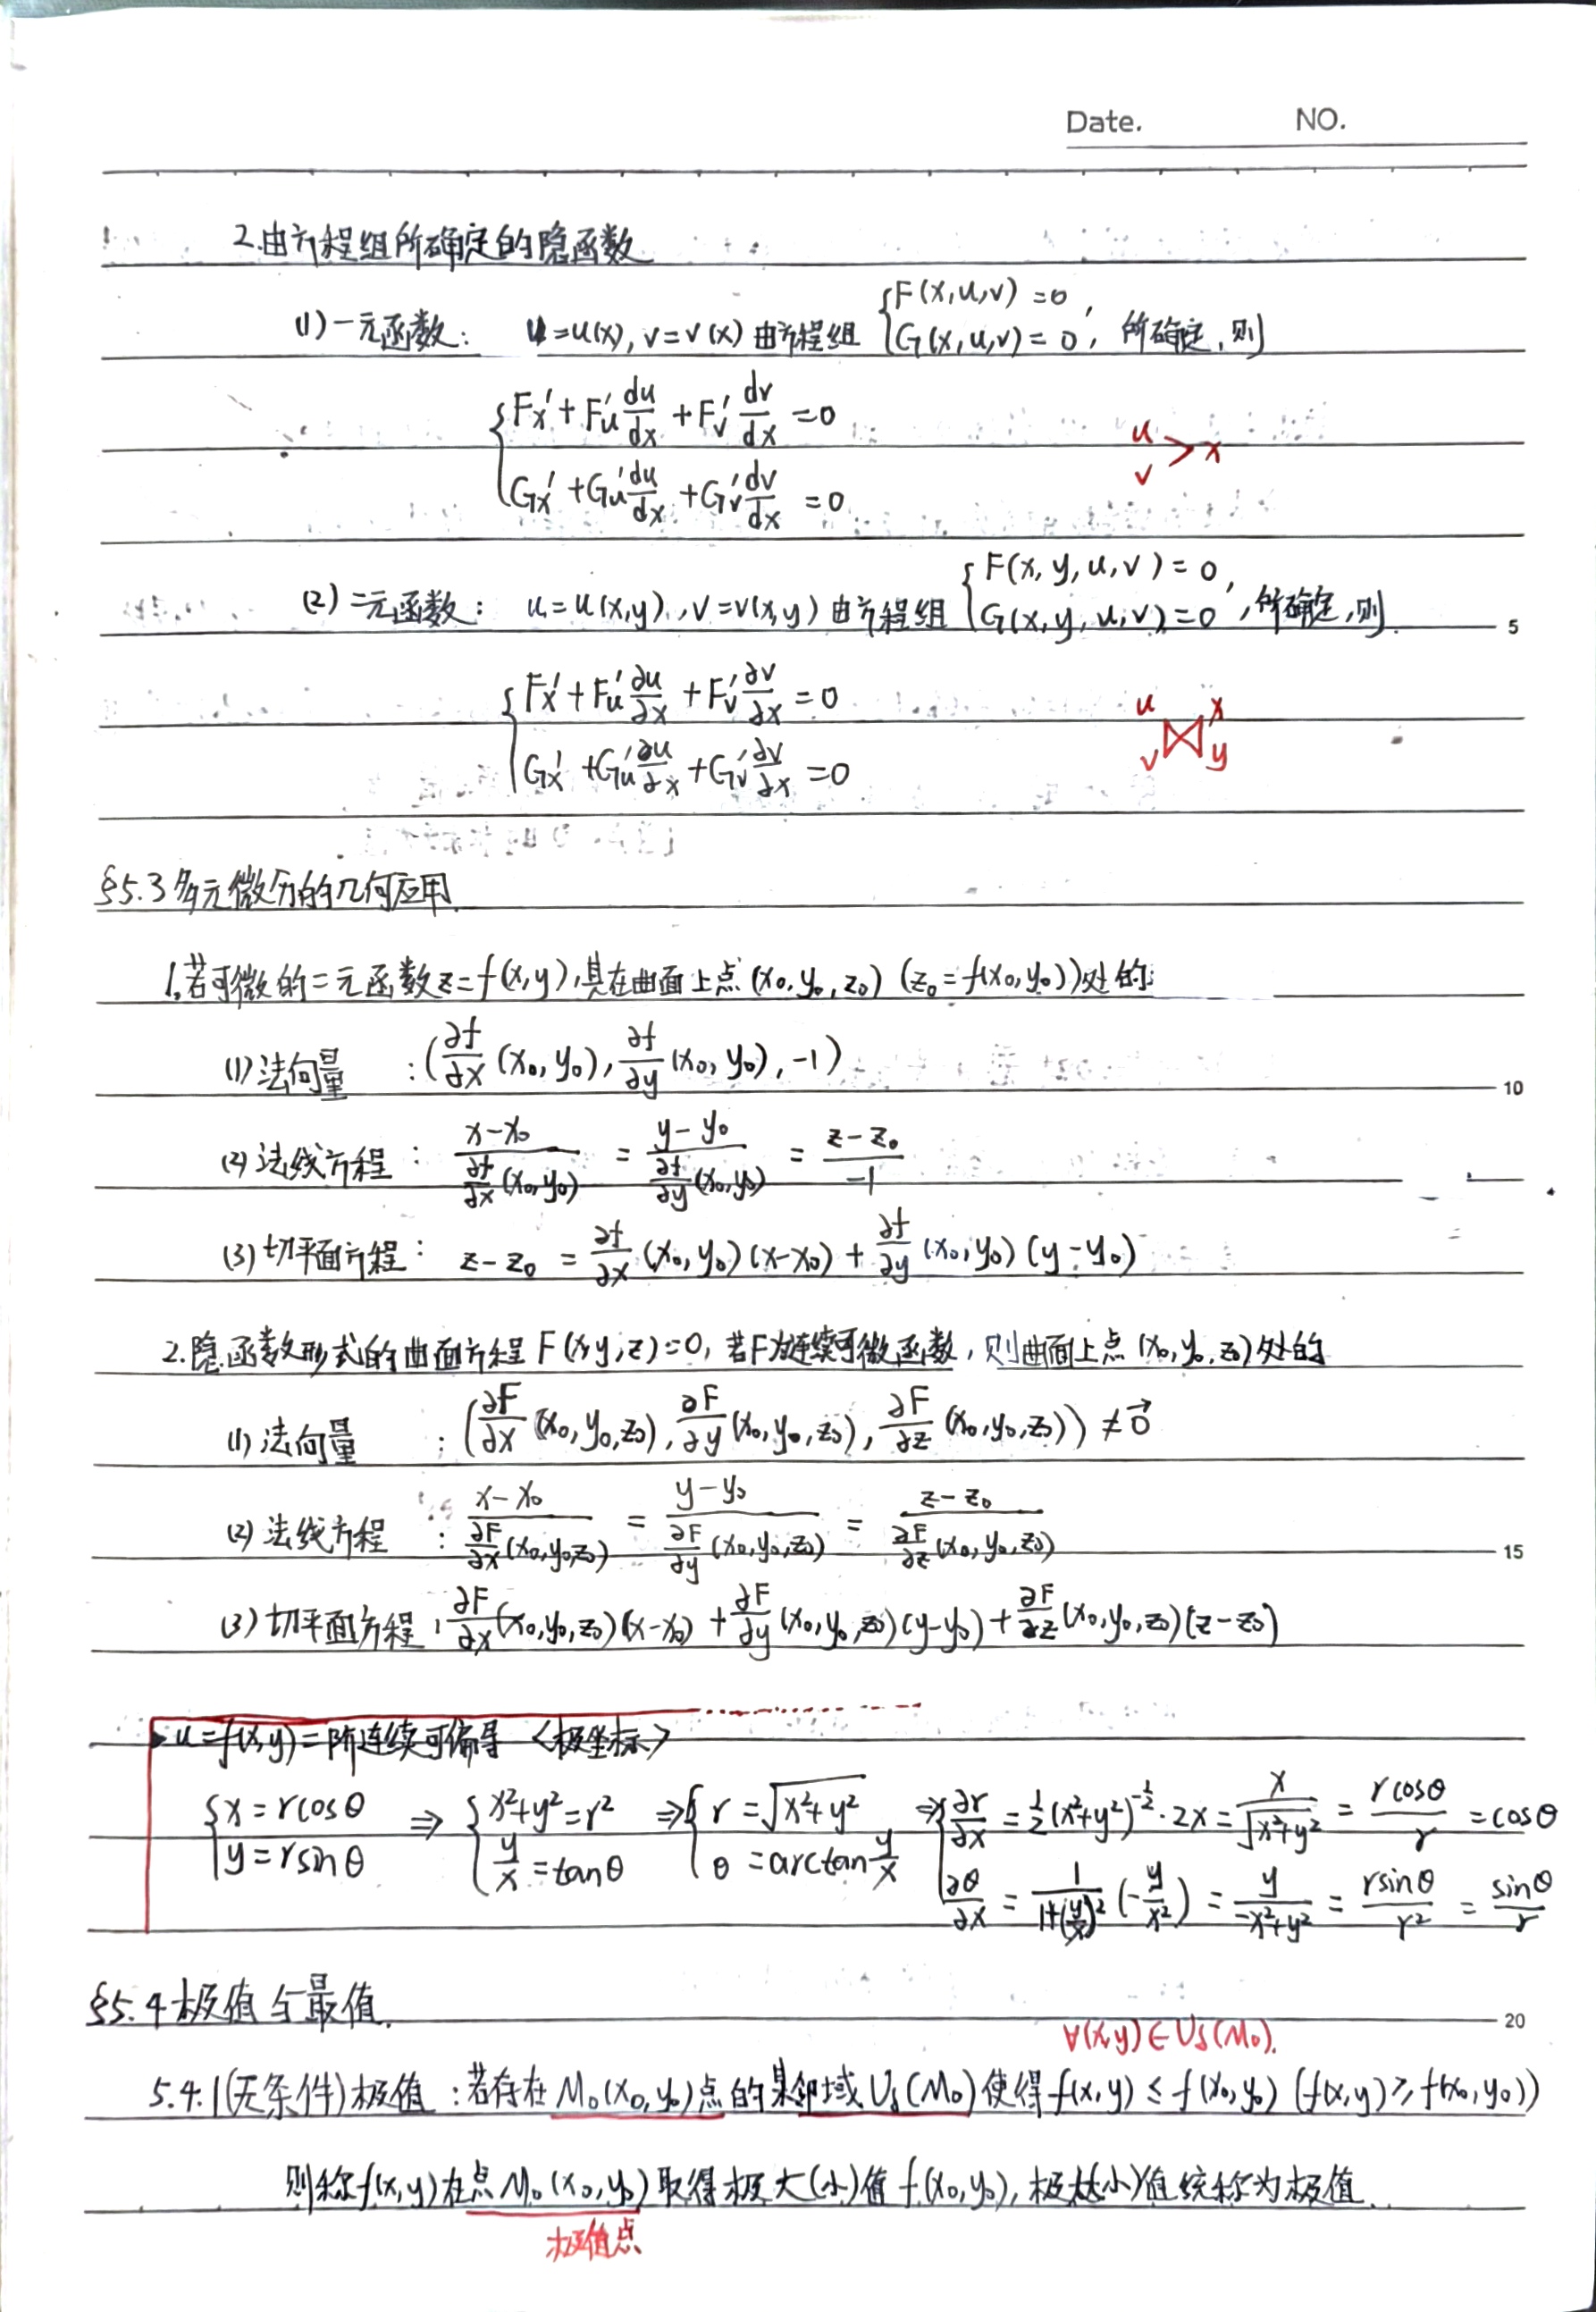 Date. NO.
2.由方程组所确定的隐函数
(1)一元函数: u=u(x),v=v(x)由方程组 {F(x,u,v)=0, G(x,u,v)=0, 所确定,则
{Fx′+Fu′ du/dx+Fv′ dv/dx=0
Gx′+Gu′ du/dx+Gv′ dv/dx=0
u v > x
(2)二元函数: u=u(x,y),v=v(x,y)由方程组 {F(x,y,u,v)=0, G(x,y,u,v)=0, 所确定,则
5
{Fx′+Fu′ ∂u/∂x+Fv′ ∂v/∂x=0
Gx′+Gu′ ∂u/∂x+Gv′ ∂v/∂x=0
u v x y
§5.3多元微分的几何应用
1.若可微的二元函数z=f(x,y),其在曲面上点(x₀,y₀,z₀)(z₀=f(x₀,y₀))处的:
(1)法向量 :(∂f/∂x(x₀,y₀),∂f/∂y(x₀,y₀),-1)
10
(2)法线方程: (x-x₀)/(∂f/∂x(x₀,y₀)) = (y-y₀)/(∂f/∂y(x₀,y₀)) = (z-z₀)/-1
(3)切平面方程: z-z₀=∂f/∂x(x₀,y₀)(x-x₀)+∂f/∂y(x₀,y₀)(y-y₀)
2.隐函数形式的曲面方程F(x,y,z)=0,若F为连续可微函数,则曲面上点(x₀,y₀,z₀)处的
(1)法向量 :(∂F/∂x(x₀,y₀,z₀),∂F/∂y(x₀,y₀,z₀),∂F/∂z(x₀,y₀,z₀))≠0⃗
(2)法线方程 : (x-x₀)/(∂F/∂x(x₀,y₀,z₀)) = (y-y₀)/(∂F/∂y(x₀,y₀,z₀)) = (z-z₀)/(∂F/∂z(x₀,y₀,z₀))
15
(3)切平面方程:∂F/∂x(x₀,y₀,z₀)(x-x₀)+∂F/∂y(x₀,y₀,z₀)(y-y₀)+∂F/∂z(x₀,y₀,z₀)(z-z₀)
u=f(x,y)二阶连续可偏导〈极坐标〉
{x=rcosθ ⇒ {x²+y²=r² ⇒ {r=√(x²+y²) ⇒ {∂r/∂x=½(x²+y²)^(-½)·2x=x/√(x²+y²)=rcosθ/r=cosθ
y=rsinθ y/x=tanθ θ=arctan y/x ∂θ/∂x=1/(1+(y/x)²)(-y/x²)=y/(-x²+y²)=rsinθ/r²=sinθ/r
§5.4极值与最值.
20
∀(x,y)∈Uδ(M₀).
5.4.1(无条件)极值:若存在M₀(x₀,y₀)点的某邻域Uδ(M₀)使得f(x,y)≤f(x₀,y₀)(f(x,y)≥f(x₀,y₀))
则称f(x,y)在点M₀(x₀,y₀)取得极大(小)值f(x₀,y₀),极大(小)值统称为极值.
极值点